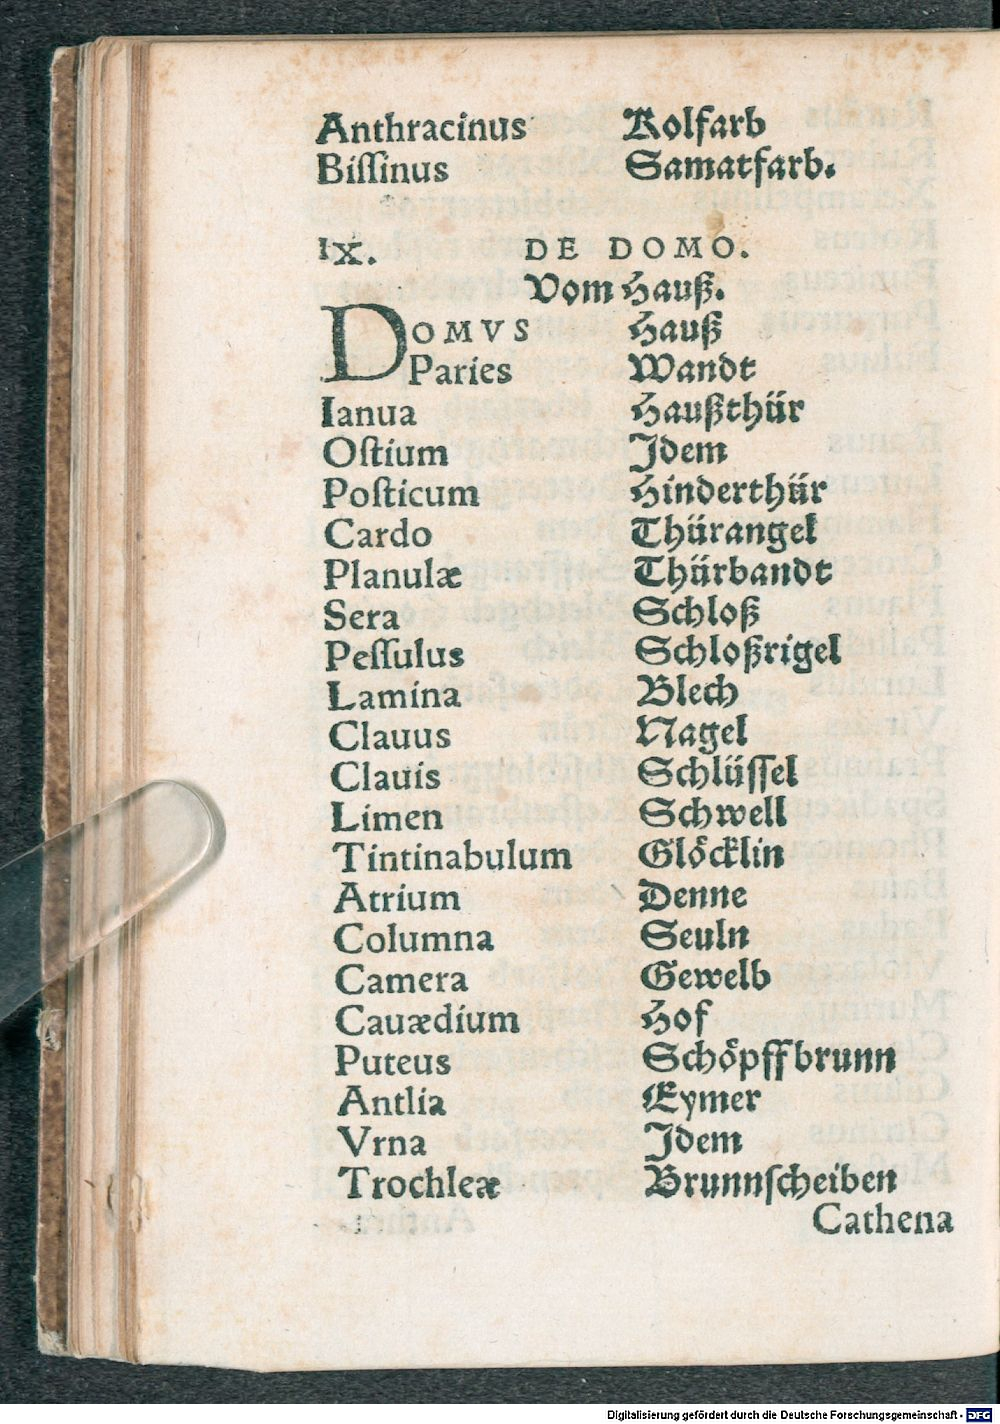 Anthracinus Kolfarb
Biſſinus Samatfarb.
IX. DE DOMO.
Vom Hauß.
DOMVS Hauß
Paries Wandt
Ianua Haußthür
Oſtium Idem
Poſticum Hinderthür
Cardo Thürangel
Planulæ Thürbandt
Sera Schloß
Peſſulus Schloßrigel
Lamina Blech
Clauus Nagel
Clauis Schlüſſel
Limen Schwell
Tintinabulum Glöcklin
Atrium Denne
Columna Seuln
Camera Gewelb
Cauædium Hof
Puteus Schöpffbrunn
Antlia Eymer
Vrna Idem
Trochleæ Brunnſcheiben
Cathena
Digitalisierung gefördert durch die Deutsche Forschungsgemeinschaft - DFG